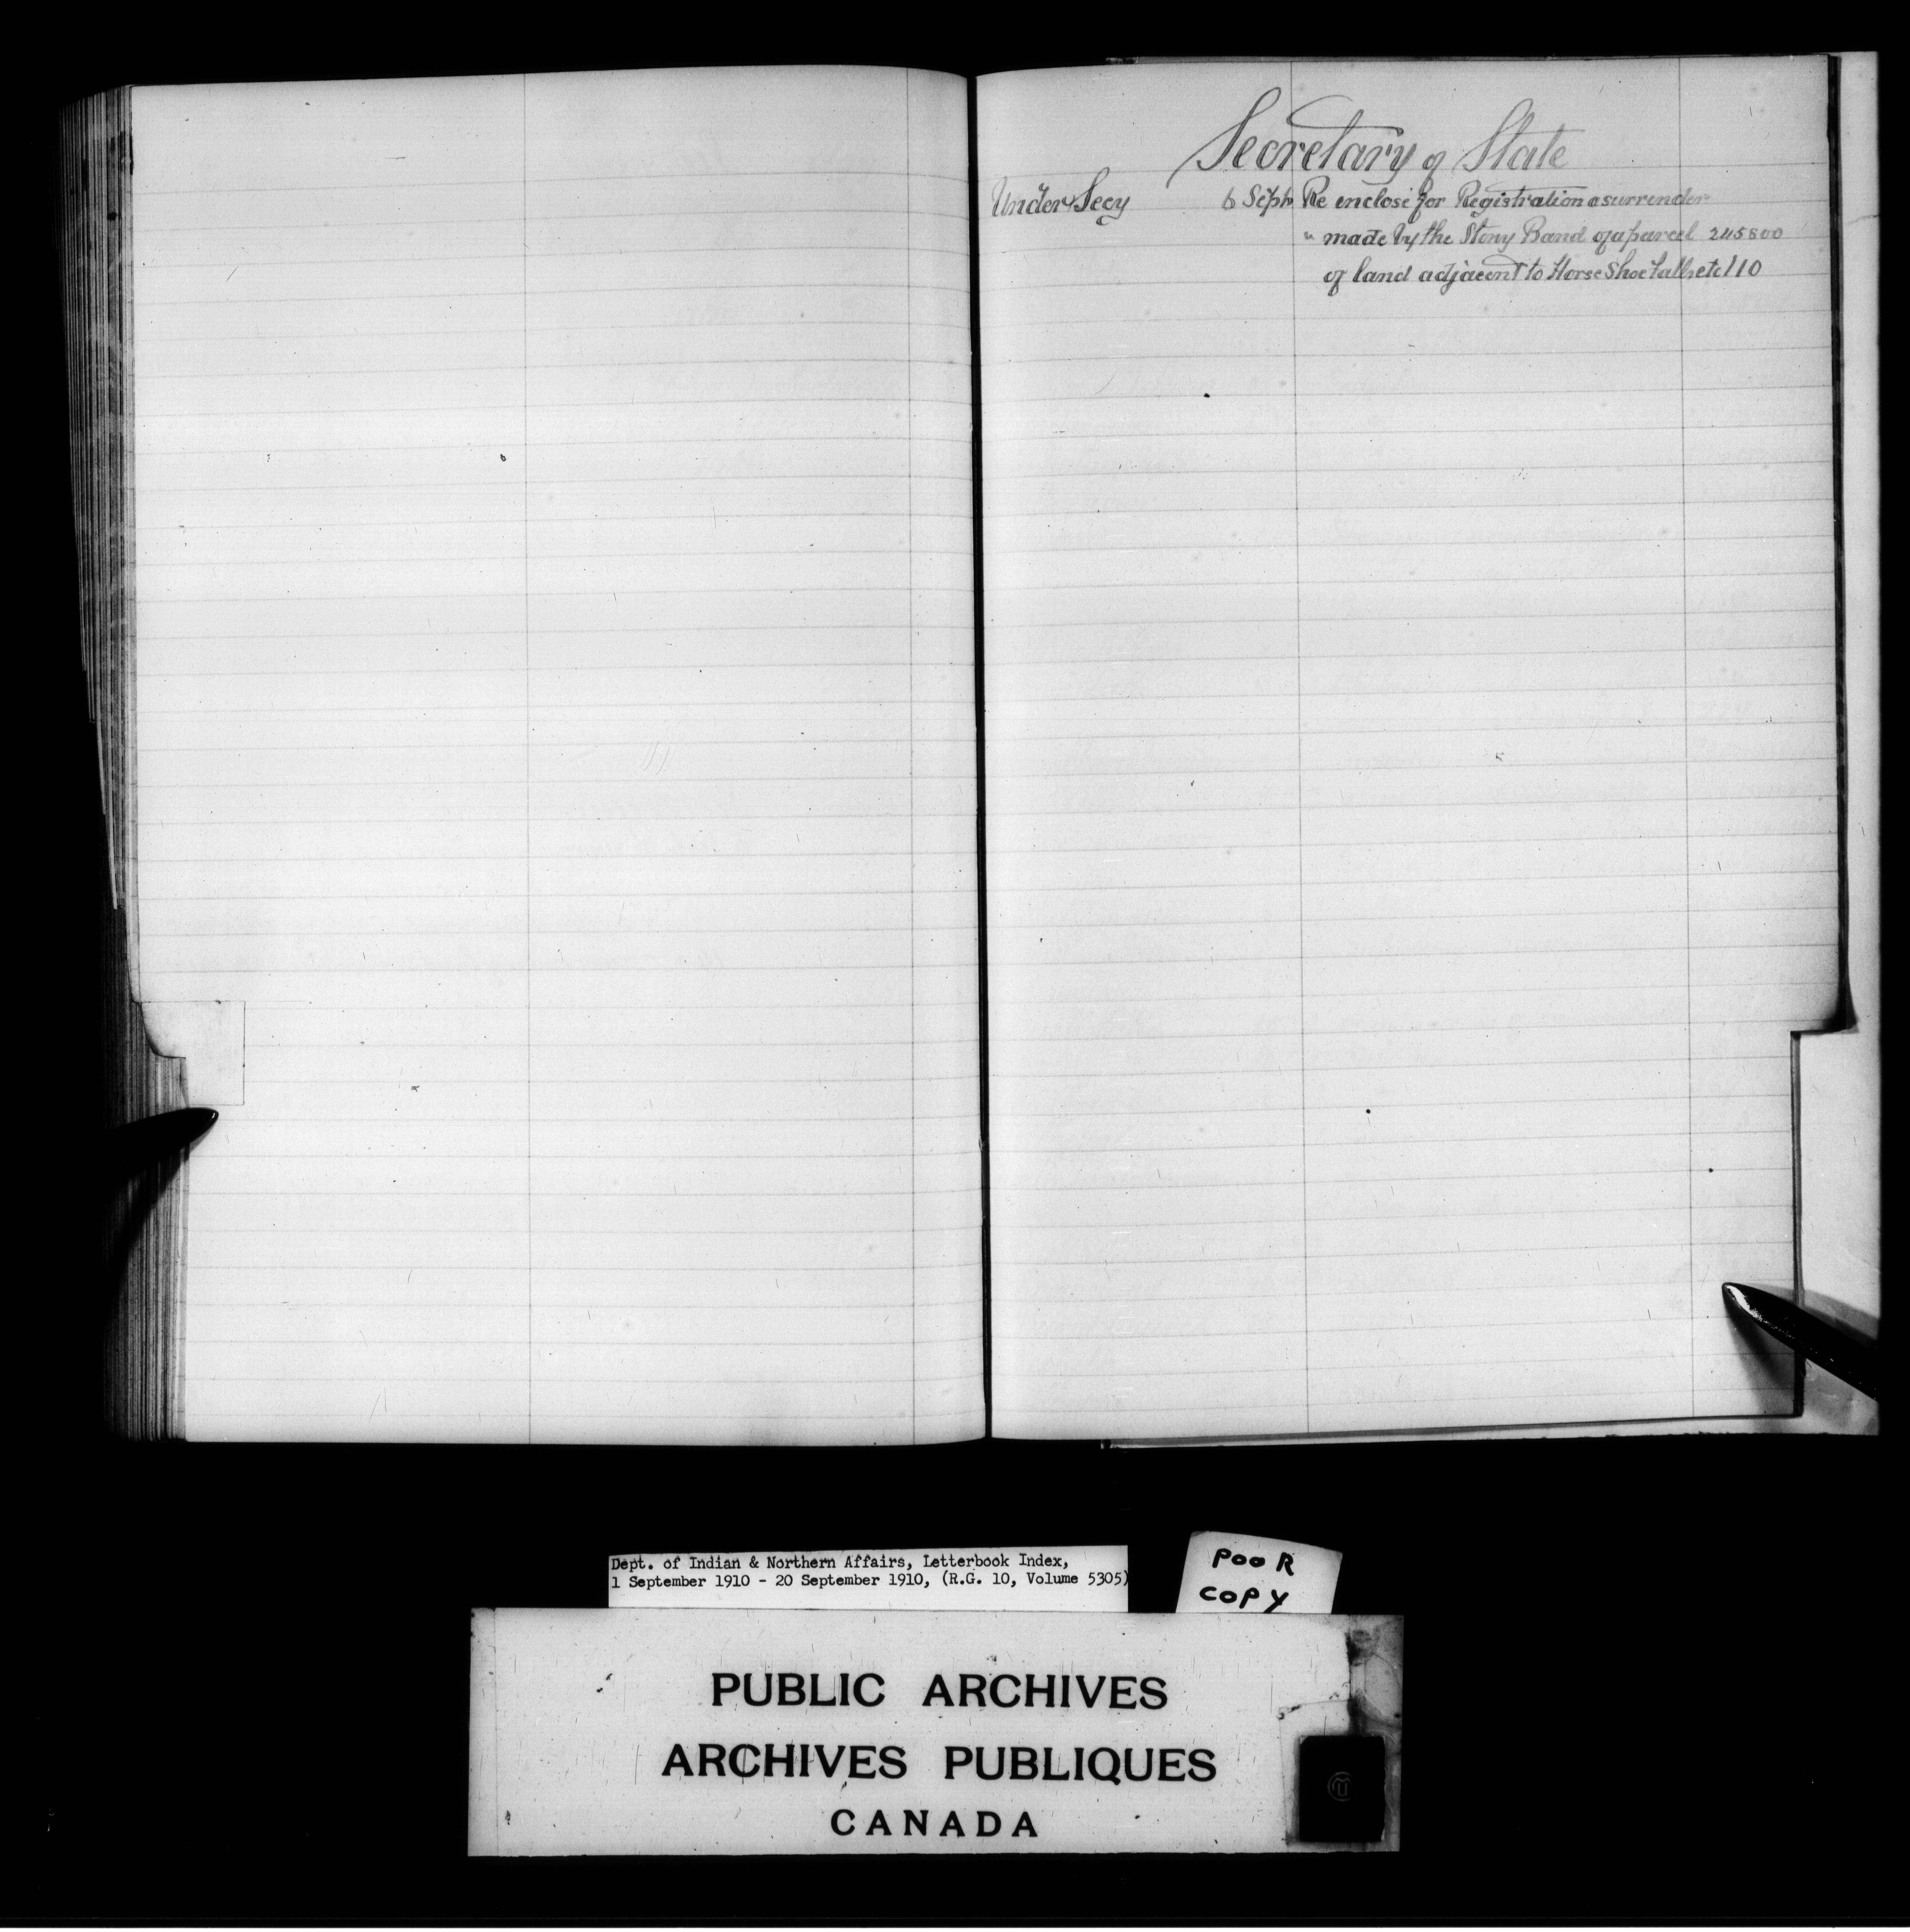 Secretary of State
Under Secy 6 Septr Re enclose for Registration a surrender
" made by the Stony Band of a parcel 245800
of land adjacent to Horse Shoe Falls etc 110
Dept. of Indian & Northern Affairs, Letterbook Index,
1 September 1910 - 20 September 1910, (R.G. 10, Volume 5305)
POOR
COPY
PUBLIC ARCHIVES
ARCHIVES PUBLIQUES
CANADA